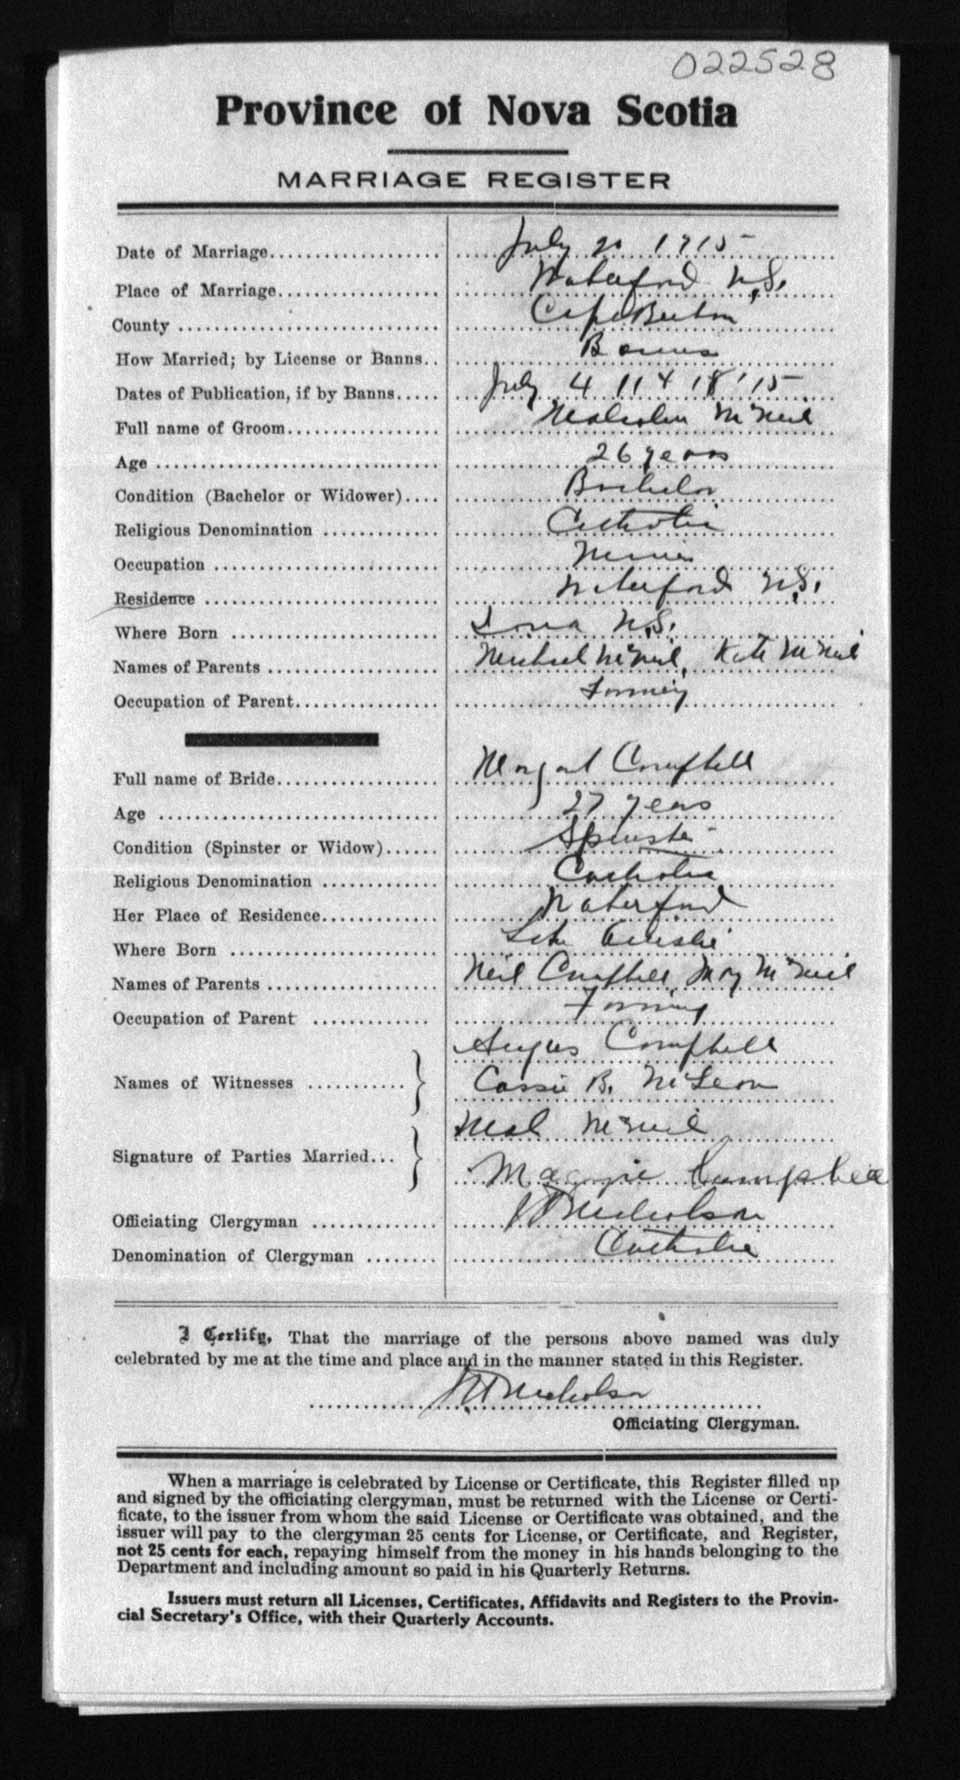 022528
Province of Nova Scotia
MARRIAGE REGISTER
Date of Marriage July 20 1915
Place of Marriage Waterford N.S.
County Cape Breton
How Married; by License or Banns Banns
Dates of Publication, if by Banns July 4 11 & 18 '15
Full name of Groom Malcolm McNeil
Age 26 years
Condition (Bachelor or Widower) Bachelor
Religious Denomination Catholic
Occupation Miner
Residence Waterford N.S.
Where Born Iona N.S.
Names of Parents Michael McNeil, Kate McNeil
Occupation of Parent Farming
Full name of Bride Margaret Campbell
Age 27 years
Condition (Spinster or Widow) Spinster
Religious Denomination Catholic
Her Place of Residence Waterford
Where Born Lake Ainslie
Names of Parents Neil Campbell, Mary McNeil
Occupation of Parent Farming
Angus Campbell
Names of Witnesses Cassie B. McLean
Mal McNeil
Signature of Parties Married Maggie
Officiating Clergyman Nicholson
Denomination of Clergyman Catholic
I Certify, That the marriage of the persons above named was duly
celebrated by me at the time and place and in the manner stated in this Register.
Nicholson
Officiating Clergyman.
When a marriage is celebrated by License or Certificate, this Register filled up
and signed by the officiating clergyman, must be returned with the License or Certi-
ficate, to the issuer from whom the said License or Certificate was obtained, and the
issuer will pay to the clergyman 25 cents for License, or Certificate, and Register,
not 25 cents for each, repaying himself from the money in his hands belonging to the
Department and including amount so paid in his Quarterly Returns.
Issuers must return all Licenses, Certificates, Affidavits and Registers to the Provin-
cial Secretary's Office, with their Quarterly Accounts.